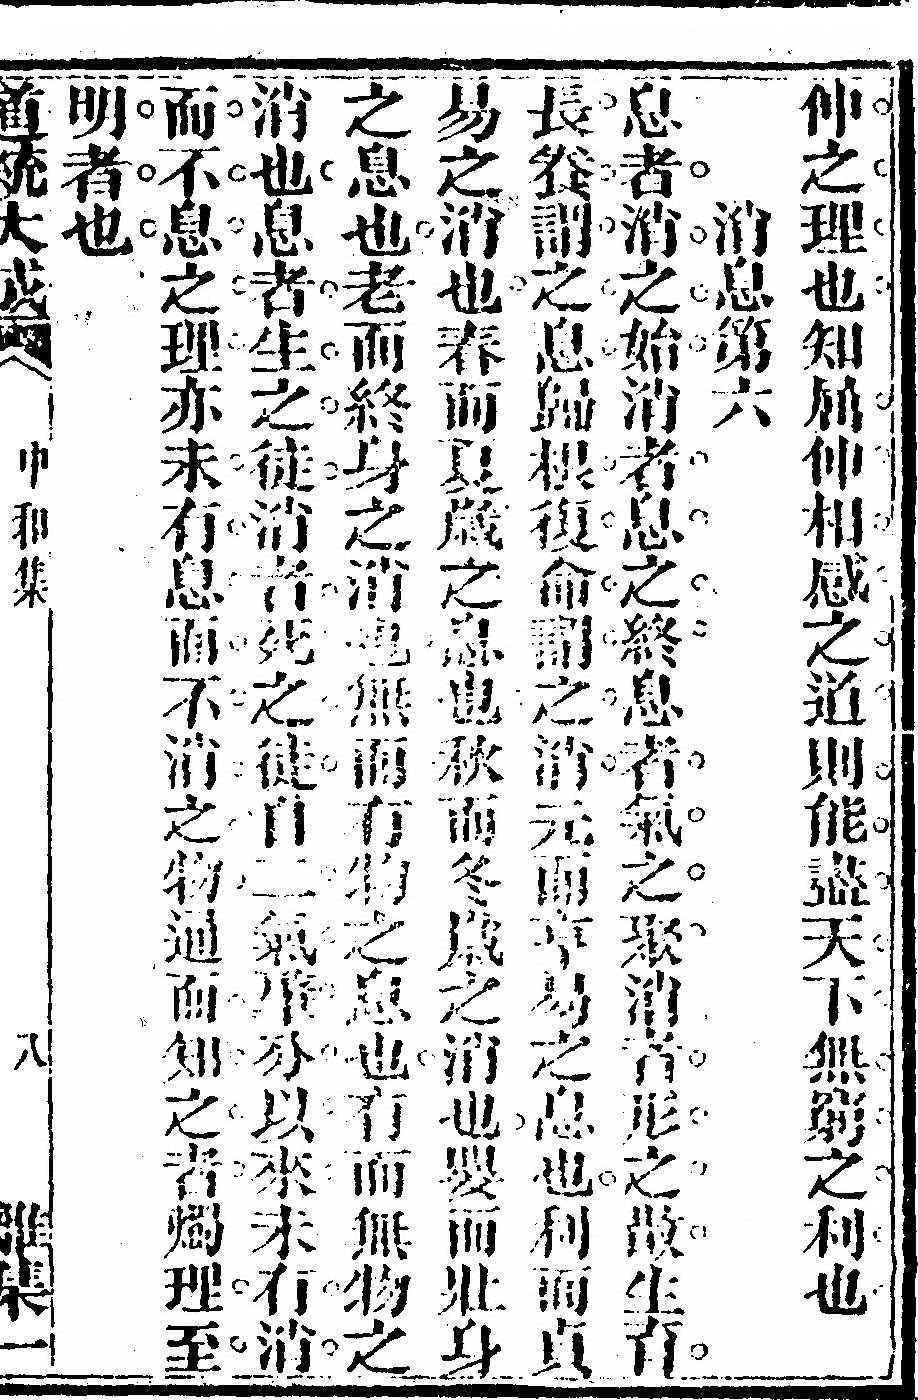 伸之理也知屈伸相感之道則能盡天下無窮之利也
消息第六
息者消之始消者息之終息者氣之聚消者形之散生育
長養謂之息歸根復命謂之消元而亨易之息也利而貞
易之消也春而夏歲之息也秋而冬歲之消也嬰而壯身
之息也老而終身之消也無而有物之息也有而無物之
消也息者生之徒消者死之徒自二氣肇分以來未有消
而不息之理亦未有息而不消之物通而知之者燭理至
明者也
道統大成
中和集
八
集一